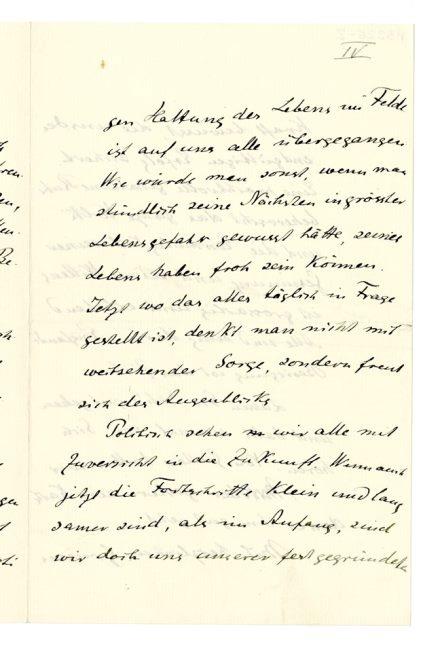 IV
gen Haltung des Lebens im Felde
ist auf uns alle übergegangen
Wie würde man sonst, wenn man
stündlich seine Nächsten in grösster
Lebensgefahr gewusst hätte, seines
Lebens haben froh sein können.
Jetzt wo das alles täglich in Frage
gestellt ist, denkt man nicht mit
weitsehender Sorge, sondern freut
sich des Augenblicks
Politisch sehen wir alle mit
Zuversicht in die Zukunft. Wenn auch
jetzt die Fortschritte klein und lang
samer sind, als im Anfang, sind
wir doch uns unserer festgegründete